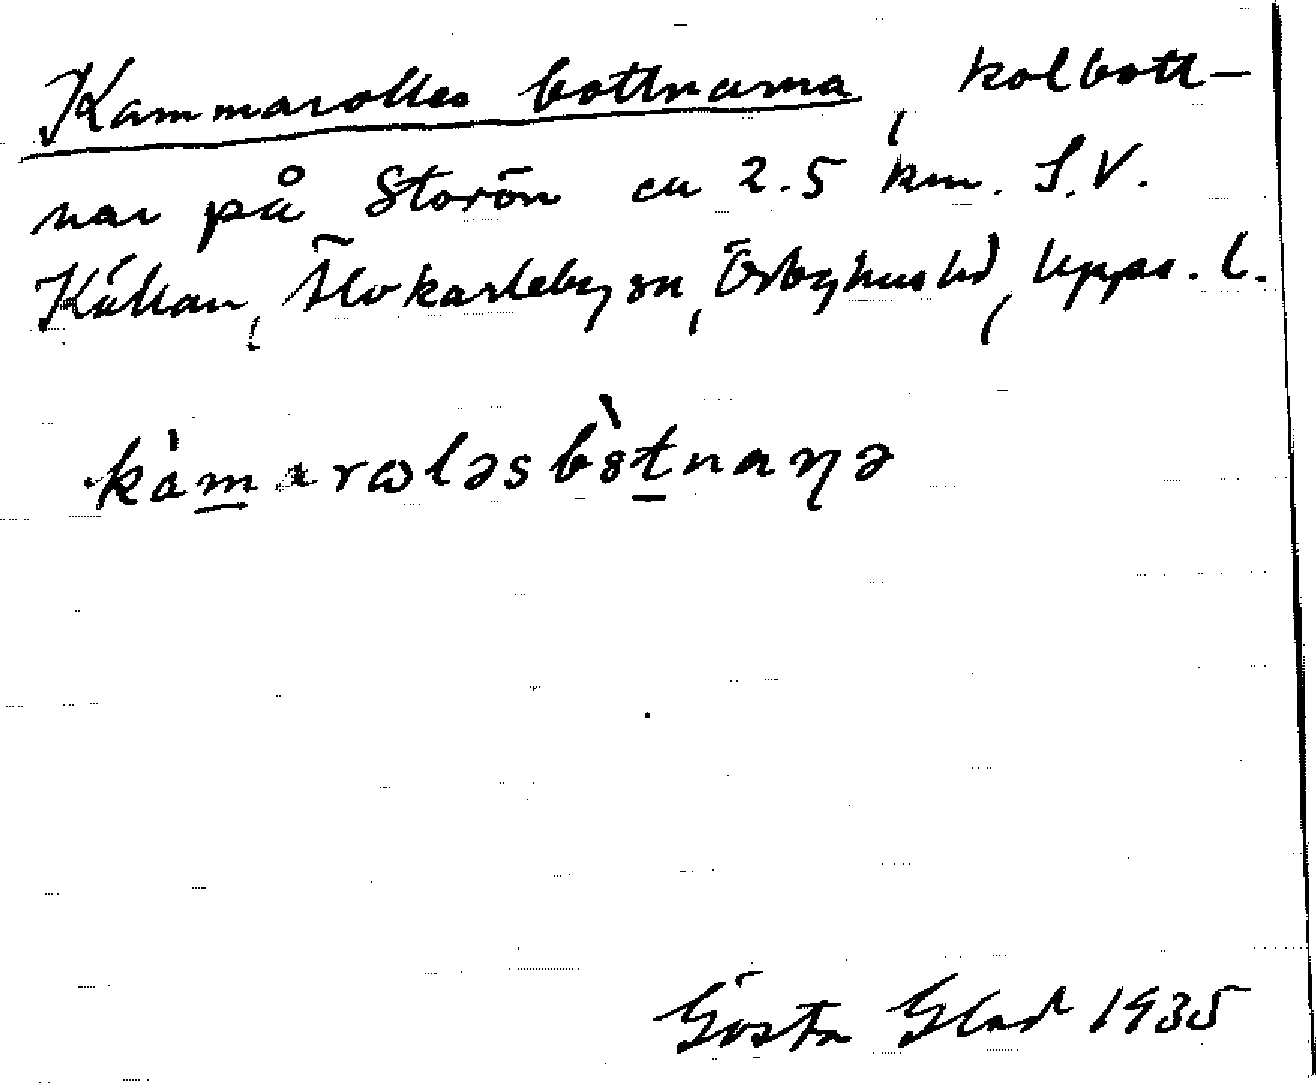 Kammarolles bottnarna, kolbott-
nar på Storön ca 2.5 km. S.V.
Kullan, Älvkarleby sn, Örbyhus hd, Upps. l.
kàmarωləsbòtnaŋə
Gösta Glad 1935